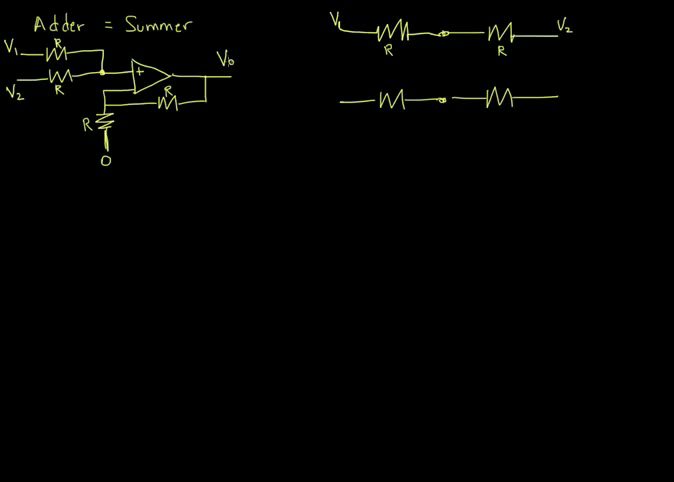 Adder = Summer
V1
R
V2
R
+
R
V0
R
0
V1
R
R
V2